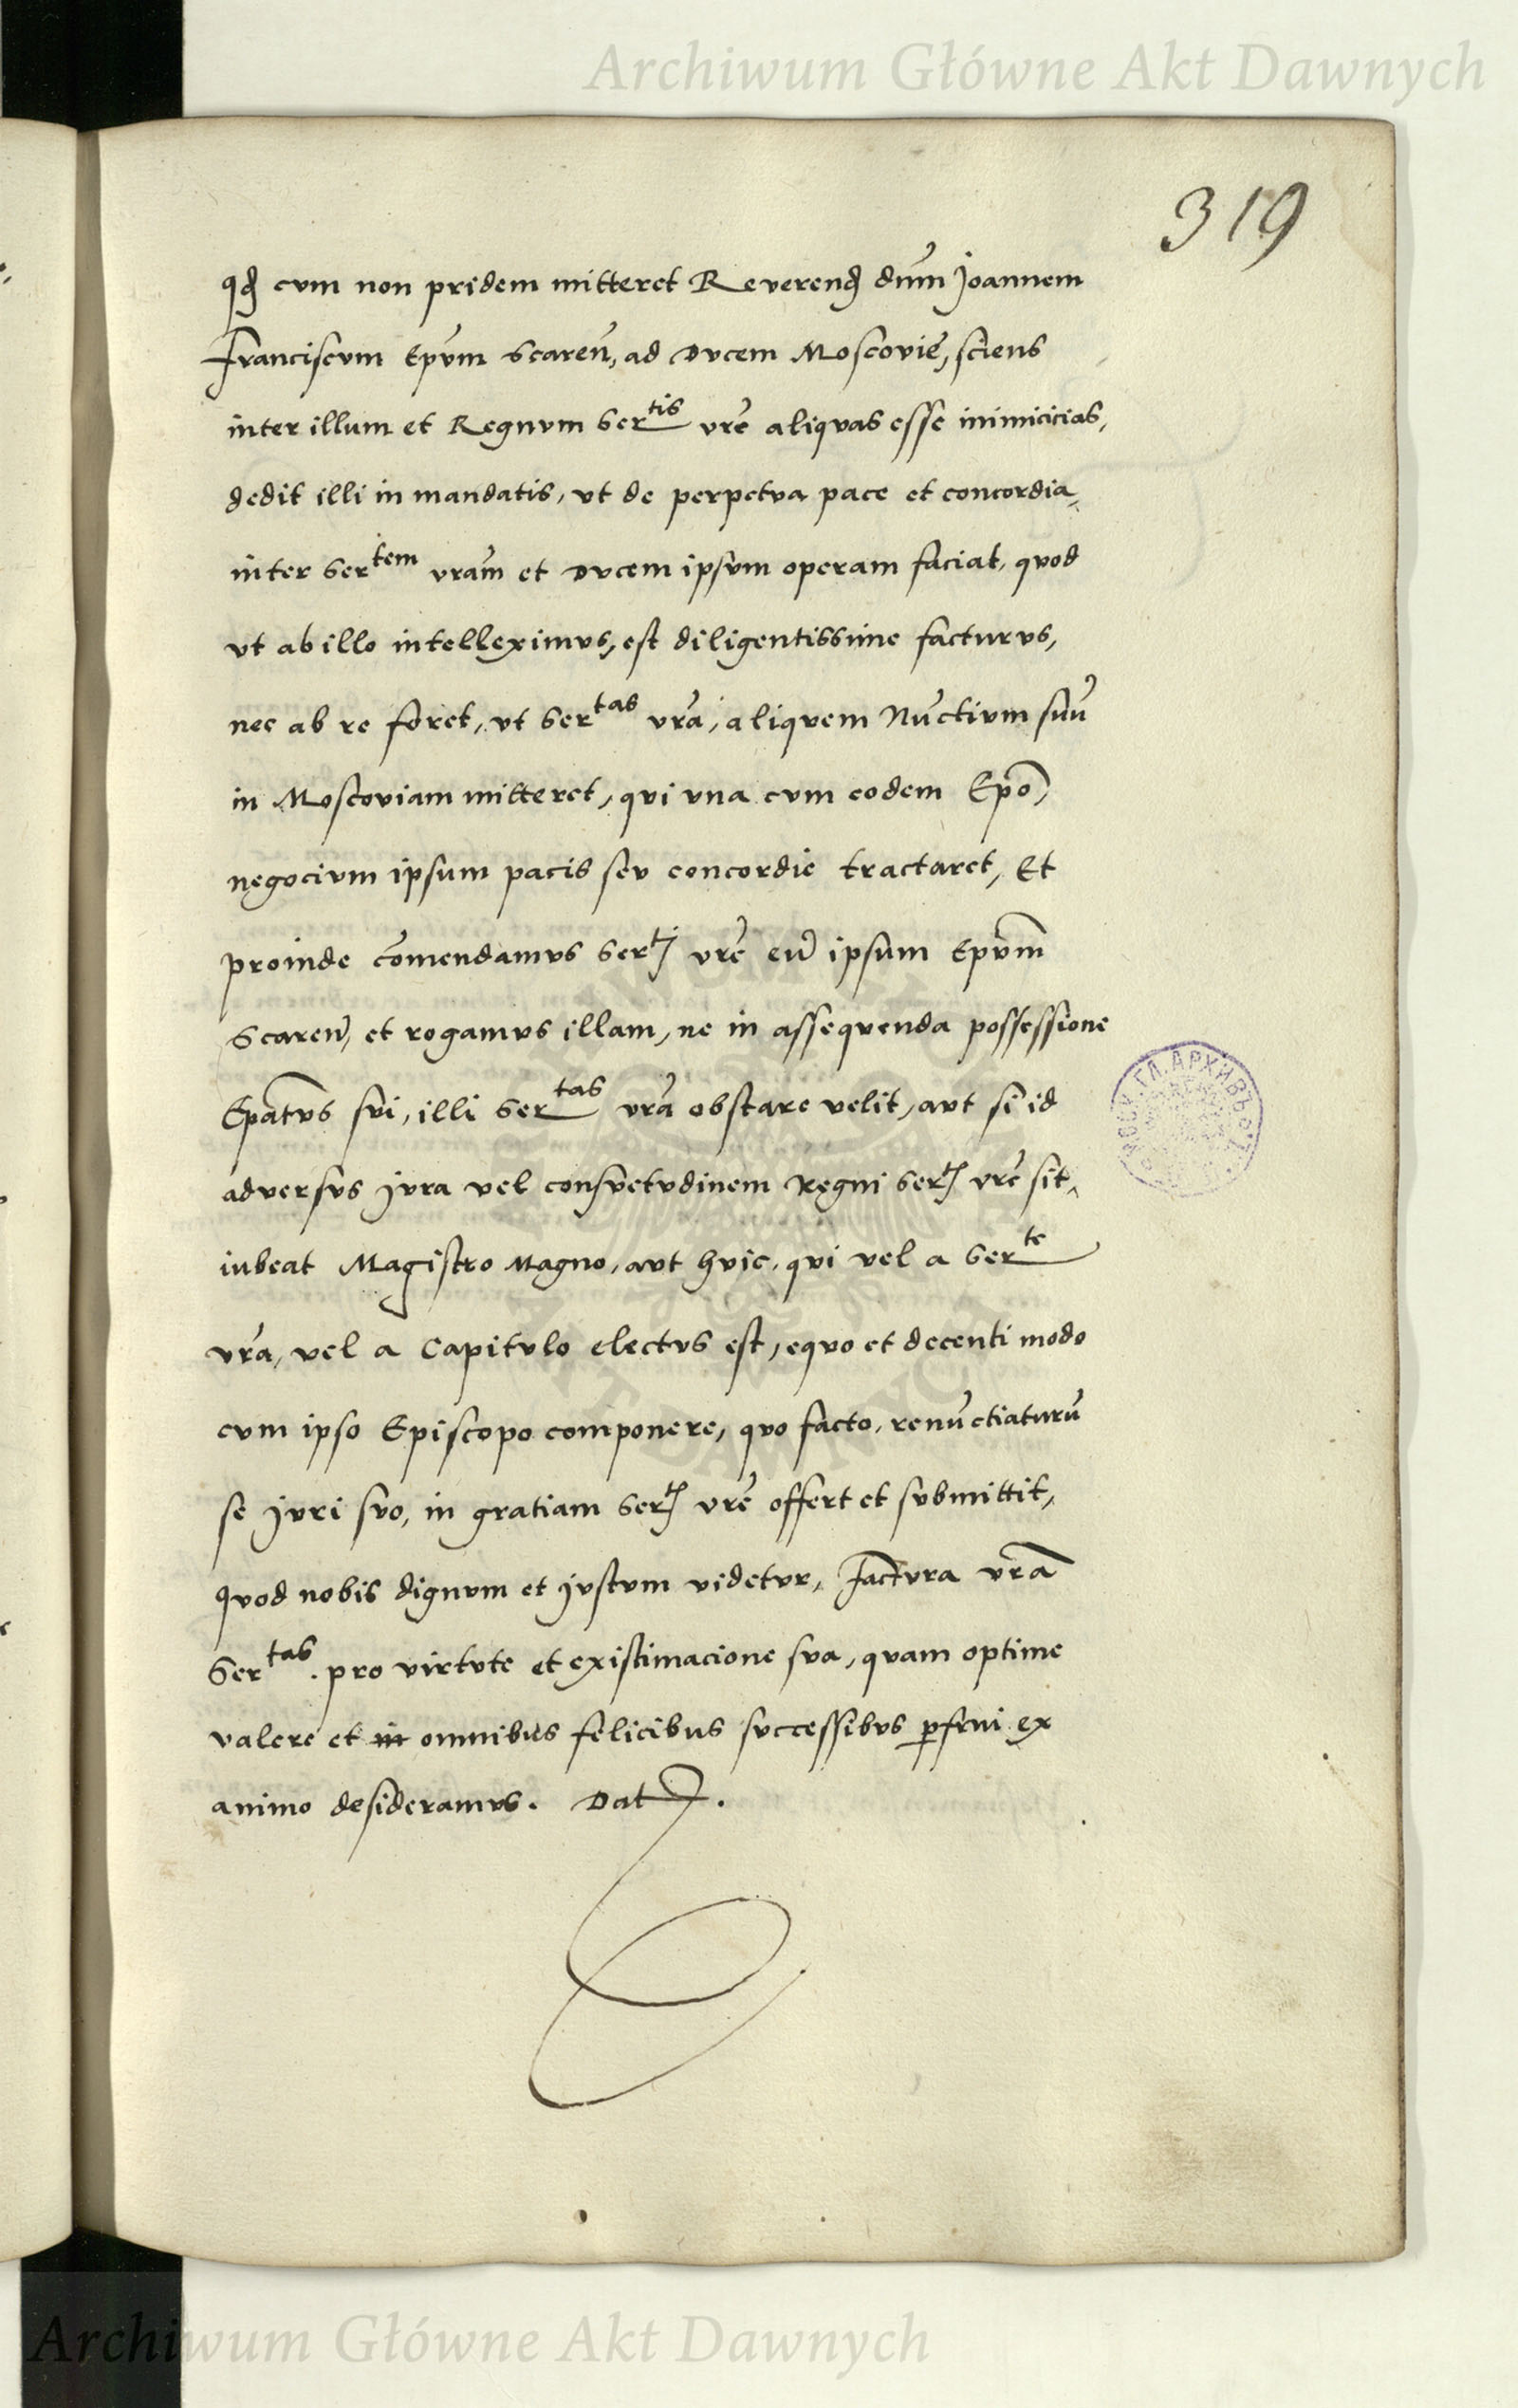 Archiwum Główne Akt Dawnych
319
qđ cum non pridem mitteret Reverenđ dũm Joannem
Franciscum Epũm Scareñ, ad Ducem Moscovie, sciens
inter illum et Regnum Ser^tis vrẽ aliquas esse inimicicias,
dedit illi in mandatis, ut de perpetua pace et concordia,
inter Ser^tem vrãm et Ducem ipsum operam faciat, quod
ut ab illo intelleximus, est diligentissime facturus,
nec ab re foret, ut Ser^tas vrã, aliquem Nũctium suũ
in Moscoviam mitteret, qui una cum eodem Epõ,
negocium ipsum pacis seu concordie tractaret, Et
proinde cõmendamus Ser^ti vrẽ eũ ipsum Epũm
Scareñ, et rogamus illam, ne in assequenda possessione
Epãtus sui, illi Ser^tas vrã obstare velit, aut si id
adversus jura vel consuetudinem Regni Ser^tis vrẽ sit,
iubeat Magistro Magno, aut huic, qui vel a Ser^te
vrã, vel a Capitulo electus est, equo et decenti modo
cum ipso Episcopo componere, quo facto, renũctiaturũ
se juri suo, in gratiam Ser^tis vrẽ offert et submittit,
quod nobis dignum et justum videtur, factura vrã
Ser^tas. pro virtute et existimacione sua, quam optime
valere et in omnibus felicibus successibus pfrui ex
animo desideramus. Dat.
Archiwum Główne Akt Dawnych